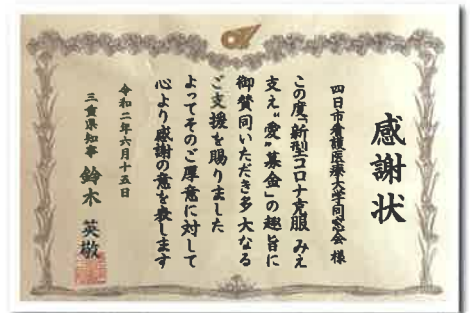 感謝状
四日市看護医療大学同窓会 様
この度「新型コロナ克服 みえ
支え“愛”募金」の趣旨に
御賛同いただき多大なる
ご支援を賜りました
よってそのご厚意に対して
心より感謝の意を表します
令和二年六月十五日
三重県知事 鈴木 英敬